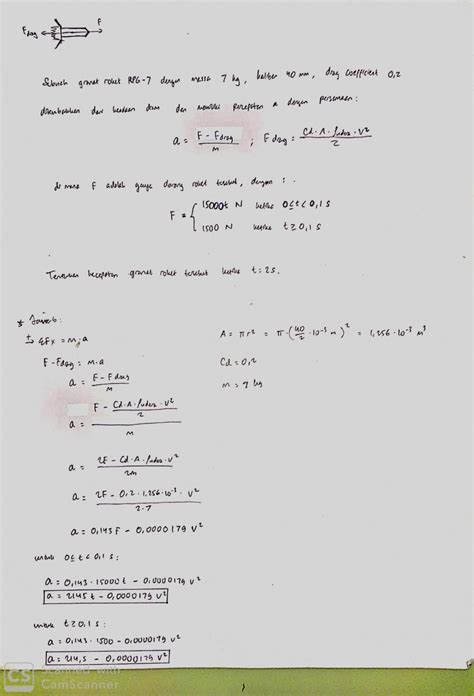 F drag
F
Sebuah granat roket RPG-7 dengan massa 7 kg, kaliber 40 mm, drag coefficient 0,2
ditembakkan dari keadaan diam dan memiliki percepatan a dengan persamaan:
a = F - Fdrag / m ; F drag = Cd · A · ρudara · v² / 2
di mana F adalah gaya dorong roket tersebut, dengan :
F = { 15000t N ketika 0≤t<0,1 s
1500 N ketika t≥0,1 s
Tentukan kecepatan granat roket tersebut ketika t=2s.
* Jawab:
ΣFx = m·a
A = πr² = π · (40/2 · 10⁻³ m)² = 1,256 · 10⁻³ m³
F - Fdrag = m·a
Cd = 0,2
a = F - Fdrag / m
m = 7 kg
a = F - Cd·A·ρudara·v² / 2 / m
a = 2F - Cd·A·ρudara·v² / 2m
a = 2F - 0,2 · 1,256·10⁻³ · v² / 2·7
a = 0,143 F - 0,0000179 v²
untuk 0≤t<0,1 s:
a = 0,143 · 15000 t - 0,0000179 v²
a = 2145 t - 0,0000179 v²
untuk t≥0,1 s:
a = 0,143 · 1500 - 0,0000179 v²
a = 214,5 - 0,0000179 v²
CS Scanned with
CamScanner